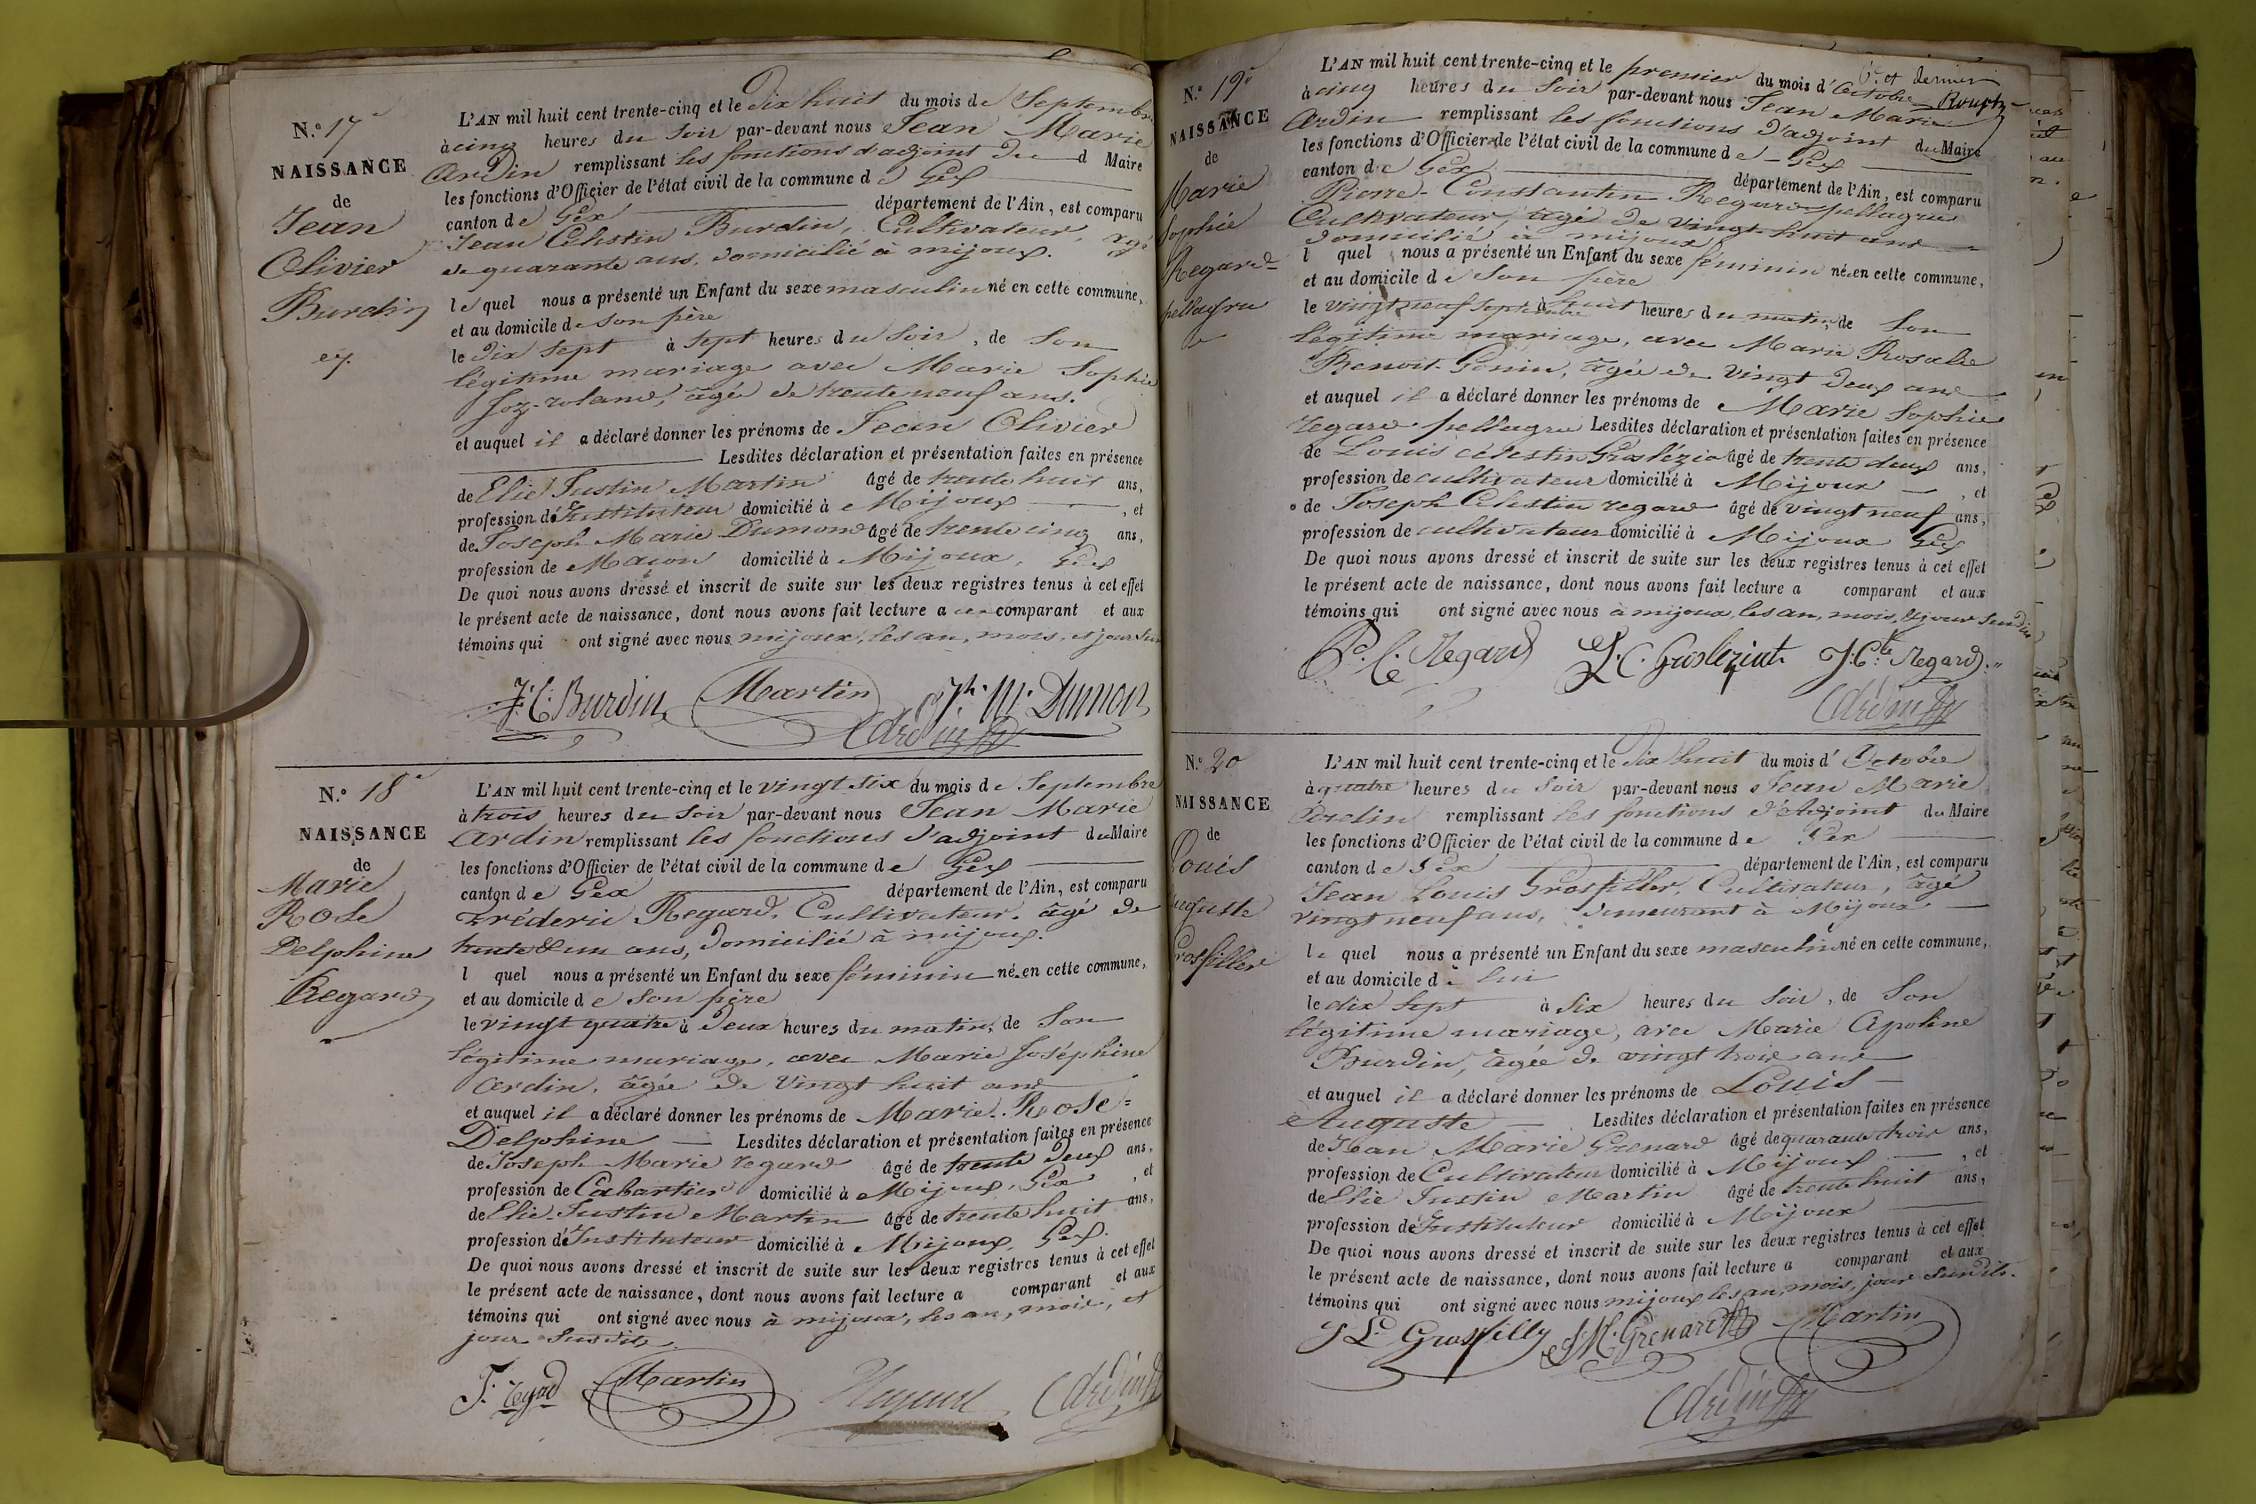 N.º 17e
NAISSANCE
de
Jean
Olivier
Burdin
L'AN mil huit cent trente-cinq et le dix huit du mois de Septembre
à cinq heures du soir par-devant nous Jean Marie
Ardin remplissant les fonctions d'adjoint du d Maire
les fonctions d'Officier de l'état civil de la commune de Gex
canton de Gex département de l'Ain, est comparu
Jean Célestin Burdin, Cultivateur, agé
de quarante ans, domicilié à mijoux.
lequel nous a présenté un Enfant du sexe masculin né en cette commune,
et au domicile de son père
le dix sept à sept heures du soir, de son
légitime mariage avec Marie Sophie
Joz-roland, âgé de trente neuf ans.
et auquel il a déclaré donner les prénoms de Jean Olivier
Lesdites déclaration et présentation faites en présence
de Elie Justin Martin âgé de trente huit ans,
profession d'Instituteur domicilié à Mijoux, et
de Joseph Marie Dumond âgé de trente cinq ans,
profession de Maçon domicilié à Mijoux, Gex
De quoi nous avons dressé et inscrit de suite sur les deux registres tenus à cet effet
le présent acte de naissance, dont nous avons fait lecture a comparant et aux
témoins qui ont signé avec nous mijoux, les an, mois, et jour sus
J. C. Burdin Martin Jh. M. Dumon
Ardin
N.º 18e
NAISSANCE
de
Marie
Rose
Delphine
Regard
L'AN mil huit cent trente-cinq et le vingt six du mois de Septembre
à trois heures du soir par-devant nous Jean Marie
Ardin remplissant les fonctions d'adjoint du Maire
les fonctions d'Officier de l'état civil de la commune de Gex
canton de Gex département de l'Ain, est comparu
Fréderic Regard, Cultivateur, âgé de
trente & un ans, domicilié à mijoux.
l quel nous a présenté un Enfant du sexe féminin né en cette commune,
et au domicile de son père
le vingt quatre à deux heures du matin, de son
légitime mariage, avec Marie Joséphine
Ardin, âgée de vingt huit ans
et auquel il a déclaré donner les prénoms de Marie-Rose=
Delphine — Lesdites déclaration et présentation faites en présence
de Joseph Marie regard âgé de trente deux ans,
profession de Cabartier domicilié à Mijoux, Gex, et
de Elie Justin Martin âgé de trente huit ans,
profession d'Instituteur domicilié à Mijoux, Gex.
De quoi nous avons dressé et inscrit de suite sur les deux registres tenus à cet effet
le présent acte de naissance, dont nous avons fait lecture a comparant et aux
témoins qui ont signé avec nous à mijoux, les an, mois, et
jour susdits
F. regd Martin Ardin
6e et dernier
N.º 19e
NAISSANCE
de
Marie
Sophie
Regard-
pellagru
L'AN mil huit cent trente-cinq et le premier du mois d'Octobre
à cinq heures du soir par-devant nous Jean Marie
Ardin remplissant les fonctions d'adjoint du Maire
les fonctions d'Officier de l'état civil de la commune de Gex
canton de Gex département de l'Ain, est comparu
Pierre-Constantin Regard-pellagru
Cultivateur, âgé de vingt-huit ans
domicilié à mijoux
l quel nous a présenté un Enfant du sexe féminin née en cette commune,
et au domicile de son père
le vingt neuf septembre à huit heures du matin, de son
légitime mariage, avec Marie Rosalie
Benoit-Gonin, âgée de vingt deux ans
et auquel il a déclaré donner les prénoms de Marie Sophie
regard-pellagru Lesdites déclaration et présentation faites en présence
de Louis célestin Groslézia âgé de trente deux ans,
profession de cultivateur domicilié à Mijoux, et
de Joseph Célestin regard âgé de vingt neuf ans,
profession de cultivateur domicilié à Mijoux Gex
De quoi nous avons dressé et inscrit de suite sur les deux registres tenus à cet effet
le présent acte de naissance, dont nous avons fait lecture a comparant et aux
témoins qui ont signé avec nous à mijoux, les an, mois, et jour susdits
P. C. Regard L. C. Grosléziat J. Cte Regard
Ardin
N.º 20
NAISSANCE
de
Louis
Auguste
Grosfiller
L'AN mil huit cent trente-cinq et le dix huit du mois d'Octobre
à quatre heures du soir par-devant nous Jean Marie
Ardin remplissant les fonctions d'adjoint du Maire
les fonctions d'Officier de l'état civil de la commune de Gex
canton de Gex département de l'Ain, est comparu
Jean Louis Grosfiller, Cultivateur, âgé
vingt neuf ans, demeurant à Mijoux
le quel nous a présenté un Enfant du sexe masculin né en cette commune,
et au domicile de lui
le dix sept à six heures du soir, de son
légitime mariage, avec Marie Apoline
Burdin, âgée de vingt trois ans
et auquel il a déclaré donner les prénoms de Louis —
Auguste — Lesdites déclaration et présentation faites en présence
de Jean Marie Grenard âgé de quarante trois ans,
profession de Cultivateur domicilié à Mijoux, et
de Elie Justin Martin âgé de trente huit ans,
profession d'Instituteur domicilié à Mijoux
De quoi nous avons dressé et inscrit de suite sur les deux registres tenus à cet effet
le présent acte de naissance, dont nous avons fait lecture a comparant et aux
témoins qui ont signé avec nous mijoux les an, mois, jour susdits.
J L Grosfilly J M. Grenard Martin
Ardin